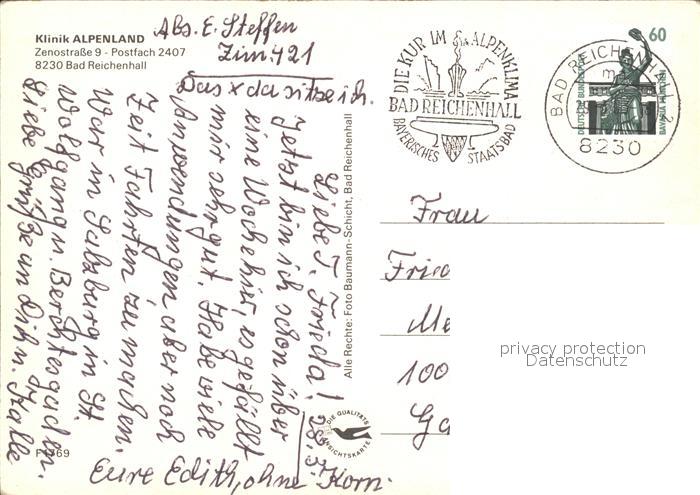 Klinik ALPENLAND
Zenostraße 9 - Postfach 2407
8230 Bad Reichenhall
Abs. E. Steffen
Zim. 421
Das x da sitze ich.
28. 3.
Liebe T. Frieda!
Jetzt bin ich schon über
eine Woche hir, es gefällt
mir sehr gut. Habe viele
Anwendungen aber noch
Zeit Fahrten zu machen.
War in Salzburg in St
Wolfgang u. Berchtesgaden.
Liebe Grüße an Dich u. Kalle
Eure Edith, ohne Korn.
F1769
Alle Rechte: Foto Baumann-Schicht, Bad Reichenhall
DIE QUALITÄTS
ANSICHTSKARTE
DIE KUR IM ALPENKLIMA
BAD REICHENHALL
BAYERISCHES STAATSBAD
BAD REICHENHALL 2
8230
60
DEUTSCHE BUNDESPOST
BAVARIA MÜNCHEN
Frau
Fried
Me
100
Ga
privacy protection
Datenschutz